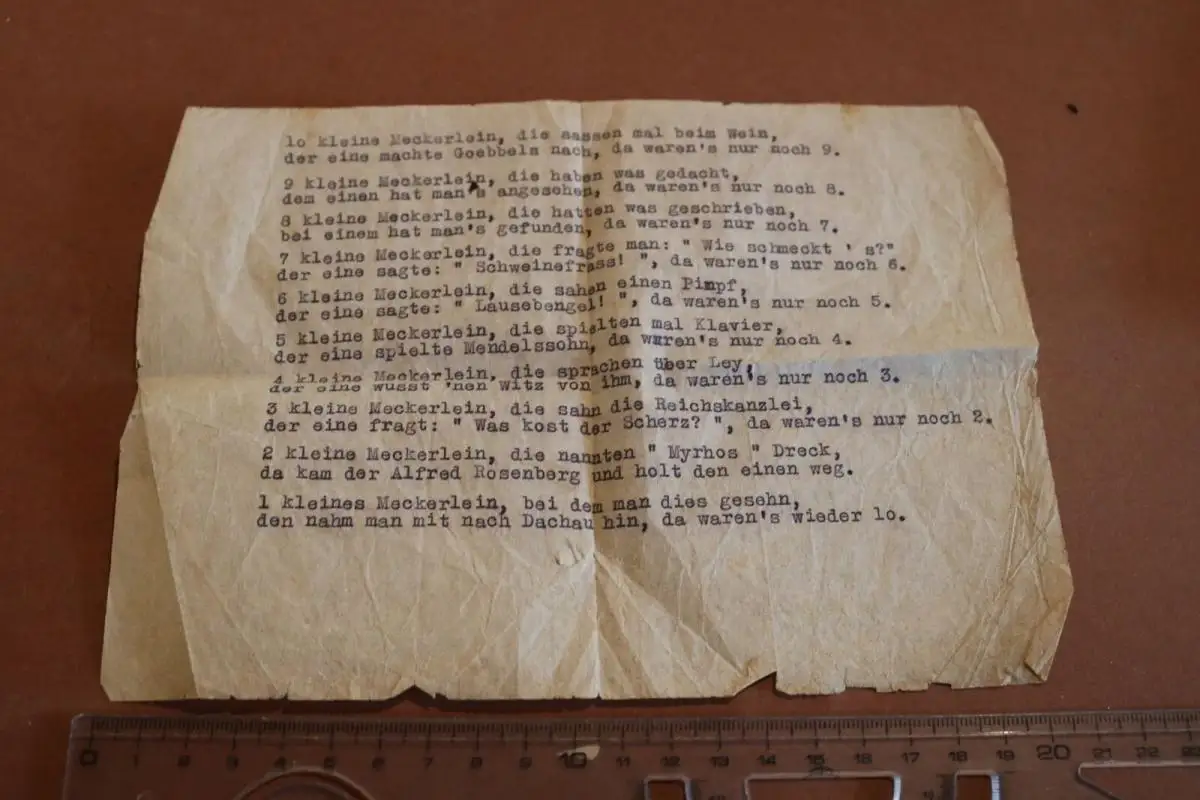 lo kleine Meckerlein, die sassen mal beim Wein,
der eine machte Goebbels nach, da waren's nur noch 9.
9 kleine Meckerlein, die haben was gedacht,
dem einen hat man's angesehen, da waren's nur noch 8.
8 kleine Meckerlein, die hatten was geschrieben,
bei einem hat man's gefunden, da waren's nur noch 7.
7 kleine Meckerlein, die fragte man: " Wie schmeckt ' s?"
der eine sagte: " Schweinefrass! ", da waren's nur noch 6.
6 kleine Meckerlein, die sahen einen Pimpf,
der eine sagte: " Lausebengel! ", da waren's nur noch 5.
5 kleine Meckerlein, die spielten mal Klavier,
der eine spielte Mendelssohn, da waren's nur noch 4.
4 kleine Meckerlein, die sprachen über Ley,
der eine wusst 'nen Witz von ihm, da waren's nur noch 3.
3 kleine Meckerlein, die sahn die Reichskanzlei,
der eine fragt: " Was kost der Scherz? ", da waren's nur noch 2.
2 kleine Meckerlein, die nannten " Myrhos " Dreck,
da kam der Alfred Rosenberg und holt den einen weg.
1 kleines Meckerlein, bei dem man dies gesehn,
den nahm man mit nach Dachau hin, da waren's wieder lo.
0 1 2 3 4 5 6 7 8 9 10 11 12 13 14 15 16 17 18 19 20 21 22